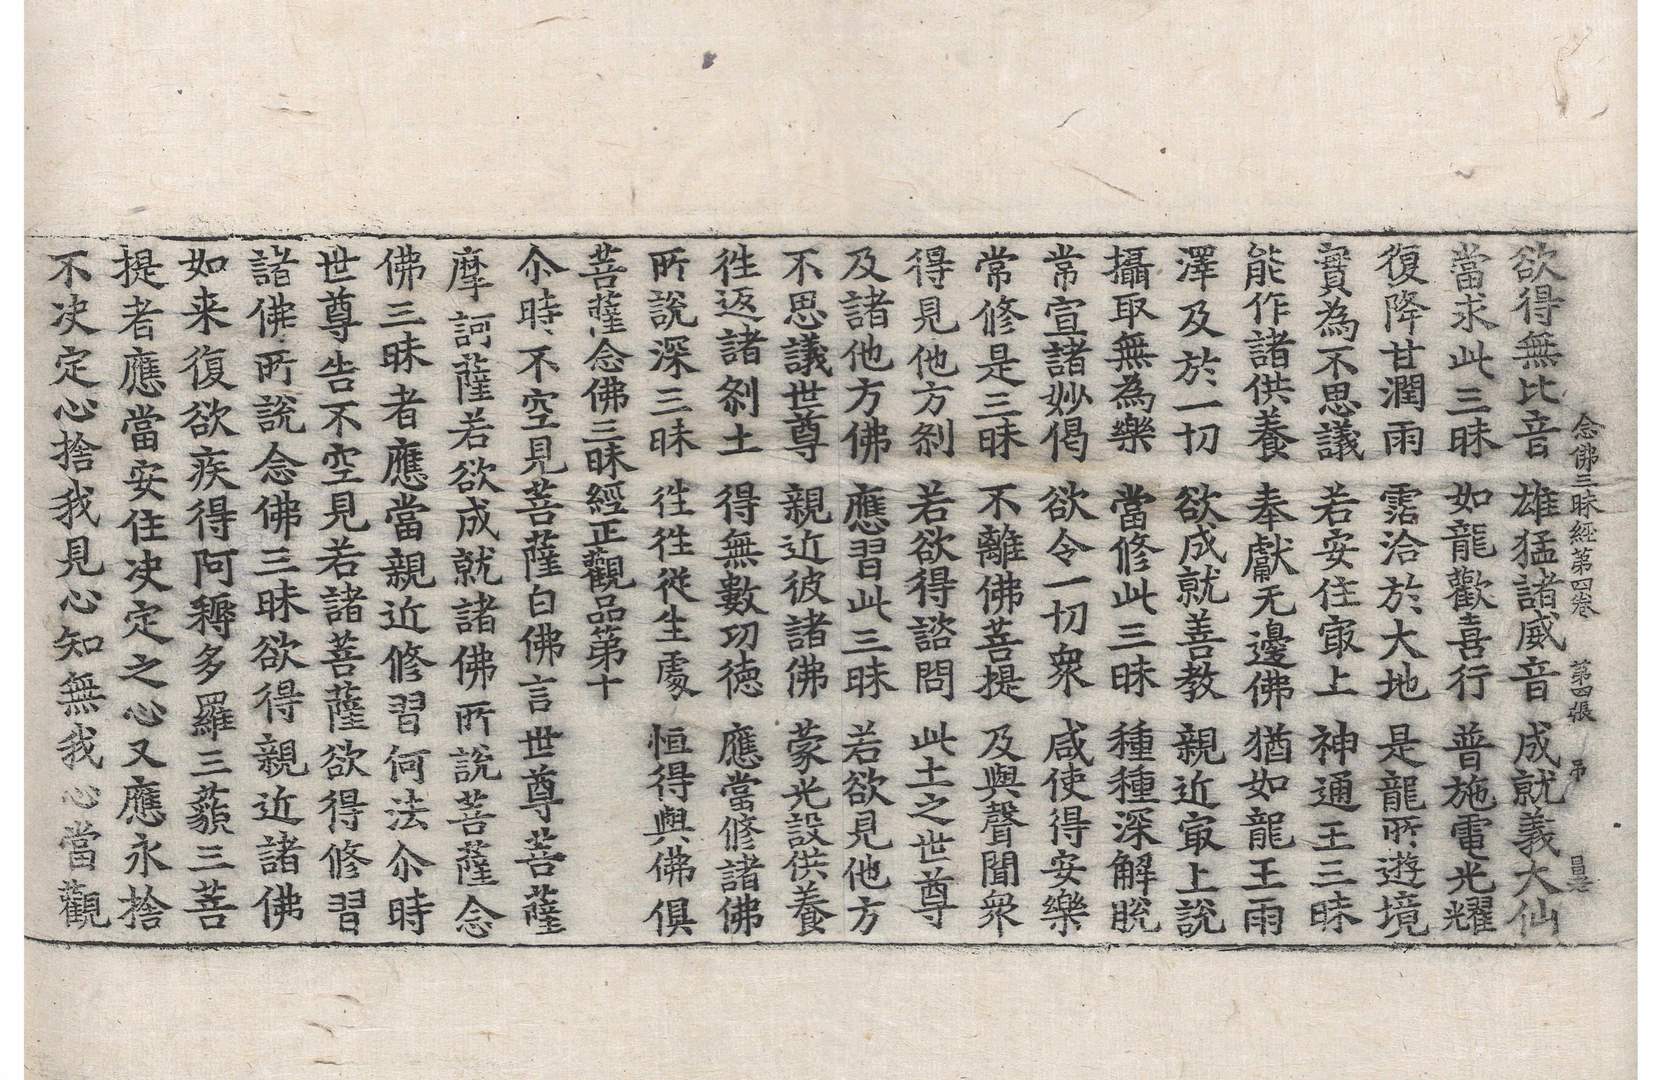 念佛三昧經第四卷　第四張　弔
欲得無比音　雄猛諸威音　成就義大仙
當求此三昧　如龍歡喜行　普施電光耀
復降甘潤雨　霑洽於大地　是龍所遊境
實為不思議　若安住冣上　神通王三昧
能作諸供養　奉獻无邊佛　猶如龍王雨
澤及於一切　欲成就善教　親近冣上說
攝取無為樂　當修此三昧　種種深解脫
常宣諸妙偈　欲令一切衆　咸使得安樂
常修是三昧　不離佛菩提　及與聲聞衆
得見他方剎　若欲得諮問　此土之世尊
及諸他方佛　應習此三昧　若欲見他方
不思議世尊　親近彼諸佛　蒙光設供養
徃返諸剎土　得無數功德　應當修諸佛
所說深三昧　徃徃從生處　恒得與佛俱
菩薩念佛三昧經正觀品第十
尒時不空見菩薩白佛言世尊菩薩
摩訶薩若欲成就諸佛所說菩薩念
佛三昧者應當親近修習何法尒時
世尊告不空見若諸菩薩欲得修習
諸佛所說念佛三昧欲得親近諸佛
如来復欲疾得阿耨多羅三藐三菩
提者應當安住决定之心又應永捨
不决定心捨我見心知無我心當觀